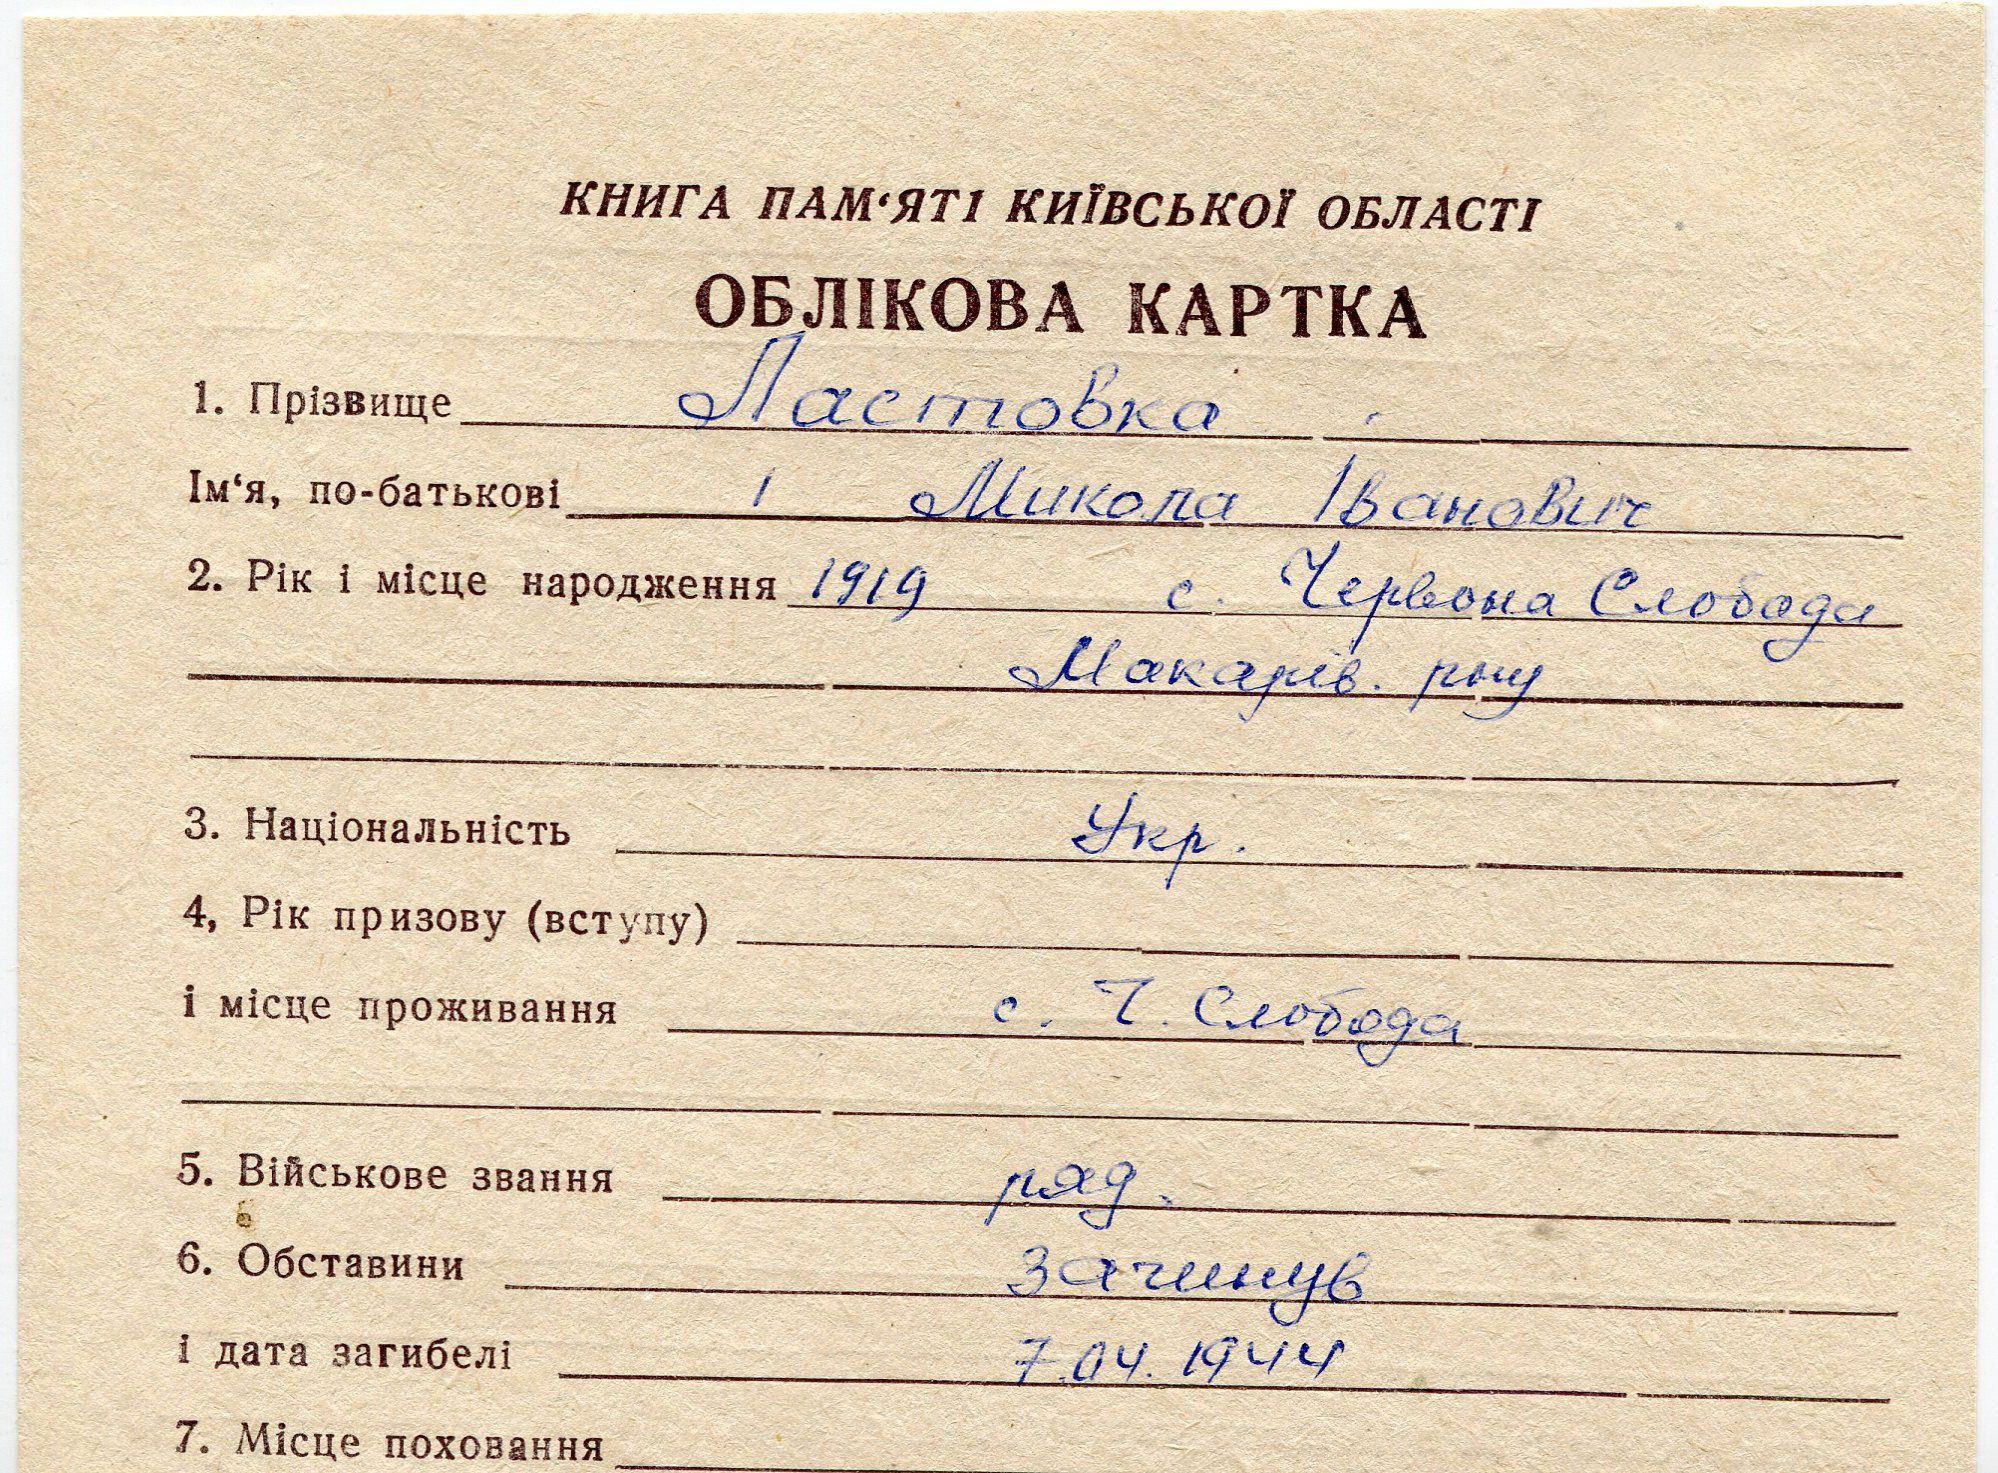 КНИГА ПАМ‘ЯТІ КИЇВСЬКОЇ ОБЛАСТІ
ОБЛІКОВА КАРТКА
1. Прізвище Ластовка
Ім‘я, по-батькові Микола Іванович
2. Рік і місце народження 1919 с. Червона Слобода
Макарів. р-ну
3. Національність Укр.
4, Рік призову (вступу)
і місце проживання с. Ч. Слобода
5. Військове звання ряд.
6. Обставини Загинув
і дата загибелі 7.04.1944
7. Місце поховання